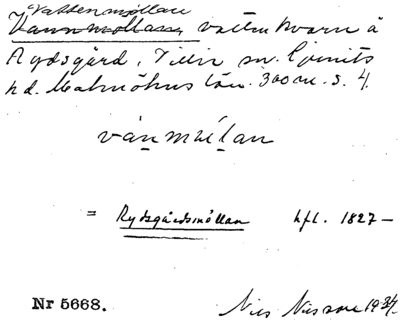 Vattenmöllare
Vannmöllan, vattenkvarn å
Rydsgård, Villie sn. Ljunits
hd. Malmöhus län. 300 m. s. 4.
vánmœ́lan
= Rydsgårdsmöllan hfl. 1827–
Nr 5668. Nils Nilsson 1934.